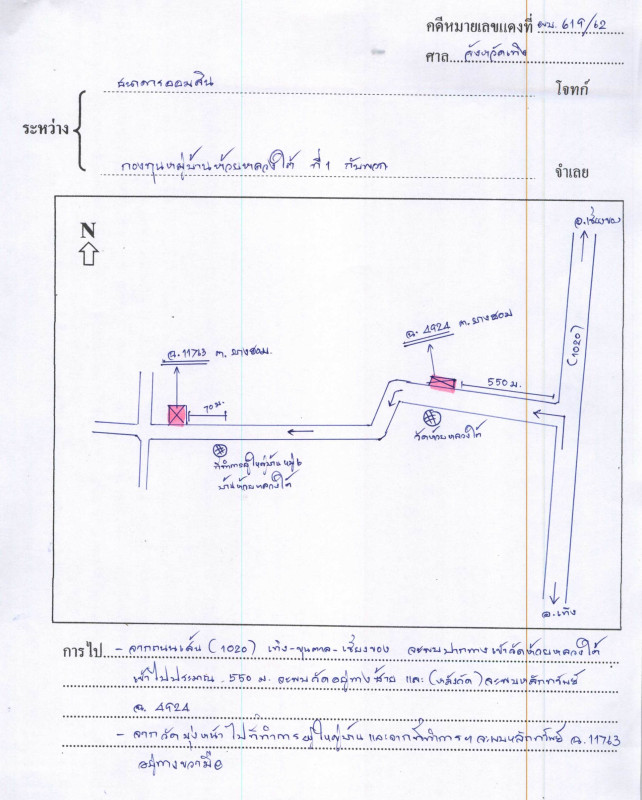 คดีหมายเลขแดงที่ ผบ. 619/62
ศาล จังหวัดเทิง
ธนาคารออมสิน โจทก์
ระหว่าง
กองทุนหมู่บ้านห้วยหลวงใต้ ที่ 1 กับพวก จำเลย
N
อ.เชียงของ
ฉ. 4924 ต. ยางฮอม
(1020)
ฉ. 11763 ต. ยางฮอม
550 ม.
70 ม.
วัดห้วยหลวงใต้
ที่ทำการผู้ใหญ่บ้าน หมู่ 6
บ้านห้วยหลวงใต้
อ.เทิง
การไป - จากถนนเส้น (1020) เทิง-ขุนตาล-เชียงของ จะพบปากทางเข้าวัดห้วยหลวงใต้
เข้าไปประมาณ 550 ม. จะพบวัดอยู่ทางซ้าย และ (หลังวัด) จะพบหลักทรัพย์
ฉ. 4924
- จากวัดมุ่งหน้าไปที่ทำการผู้ใหญ่บ้าน และจากที่ทำการฯ จะพบหลักทรัพย์ ฉ.11763
อยู่ทางขวามือ